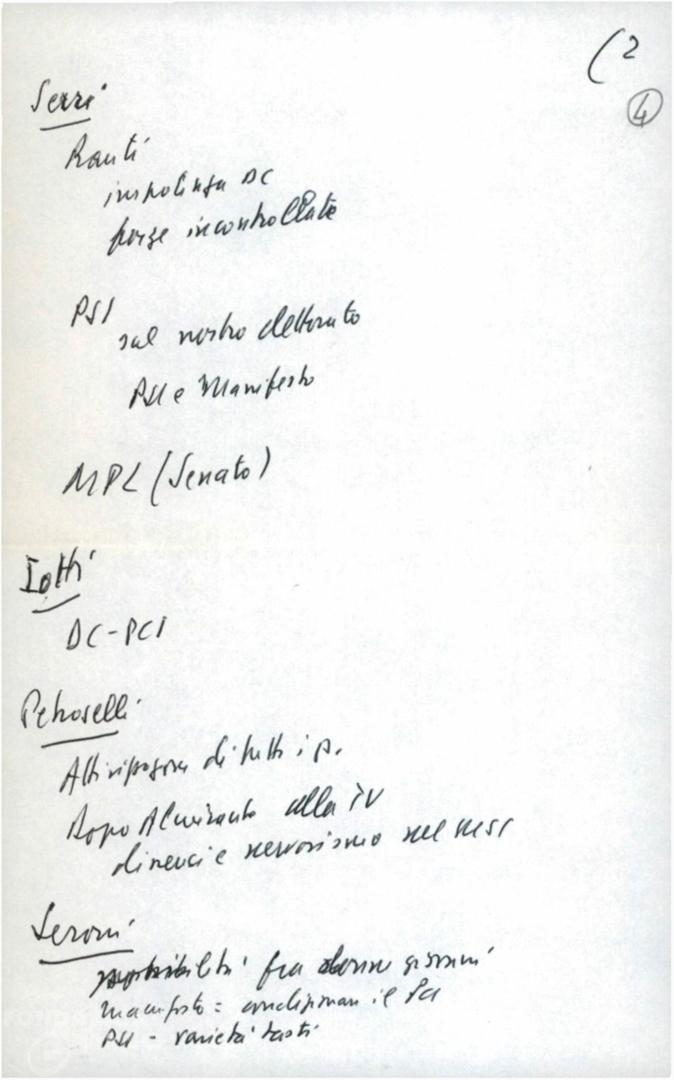 (2
4
Serri
Rauti
impotenza DC
forze incontrollate
PSI
sul nostro elettorato
PSI e Manifesto
MPL (Senato)
Iotti
DC-PCI
Petroselli
di tutti i p.
Dopo Almirante alla TV
silenzi e nervosismo nel MSI
Seroni
fra donne giovani
Manifesto = condizionare il PCI
PSI - varietà tasti